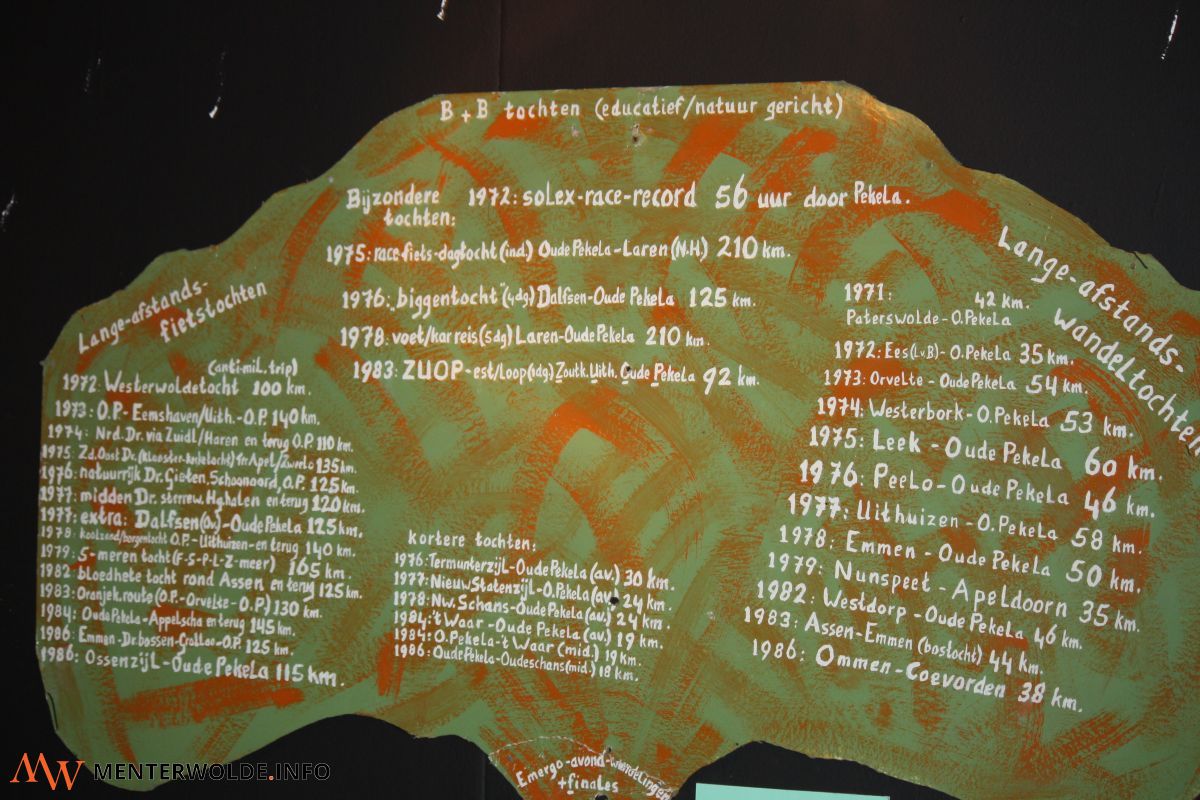 B + B tochten (educatief/natuur gericht)
Bijzondere
tochten:
1972: soLex-race-record 56 uur door PekeLa.
1975: race fiets-dagtocht (ind.) Oude PekeLa-Laren (N.H.) 210 km.
1976: „biggentocht" (4dg) Dalfsen-Oude PekeLa 125 km.
1978: voet/kar reis (5dg) Laren-Oude PekeLa 210 km.
1983: ZUOP-est/Loop (4dg) Zoutk. Uith. Oude PekeLa 92 km.
Lange-afstands-
fietstochten
(anti-mil. trip)
1972: Westerwoldetocht 100 km.
1973: O.P.- Eemshaven/Uith.-O.P. 140 km.
1974: Nrd. Dr. via Zuidl/Haren en terug O.P. 110 km.
1975: Zd. Oost Dr. Ter Apel/Zweelo 135 km.
1976: natuurrijk Dr. Gieten, Schoonoord, O.P. 125 km.
1977: midden Dr. sterrew. Hghalen en terug 120 km.
1977: extra: Dalfsen (Ov.)-Oude PekeLa 125 km.
1978: koolzaad/borgentocht O.P.-Uithuizen-en terug 140 km.
1979: 5-meren tocht (F-S-P-L-Z-meer) 165 km.
1982: bloedhete tocht rond Assen en terug 125 km.
1983: Oranjek. route (O.P.-Orvelte-O.P.) 130 km.
1984: Oude PekeLa-Appelscha en terug 145 km.
1986: Emmen-Dr. bossen-Grolloo-O.P. 125 km.
1986: OssenzijL-Oude PekeLa 115 km.
kortere tochten:
1976: TermunterzijL-Oude PekeLa (av.) 30 km.
1977: Nieuw StatenzijL-O.PekeLa (av.) 24 km.
1978: Nw. Schans-Oude PekeLa (av.) 24 km.
1984: 't Waar-Oude PekeLa (av.) 19 km.
1984: O.PekeLa-'t Waar (mid.) 19 km.
1986: Oude PekeLa-Oudeschans (mid.) 18 km.
Lange-afstands-
wandeltochten
1971: 42 km.
Paterswolde-O.PekeLa
1972: Ees (LvB)-O.PekeLa 35 km.
1973: Orvelte-Oude PekeLa 54 km.
1974: Westerbork-O.PekeLa 53 km.
1975: Leek-Oude PekeLa 60 km.
1976: PeeLo-Oude PekeLa 46 km.
1977: Uithuizen-O.PekeLa 58 km.
1978: Emmen-Oude PekeLa 50 km.
1979: Nunspeet-Apeldoorn 35 km.
1982: Westdorp-Oude PekeLa 46 km.
1983: Assen-Emmen (bostocht) 44 km.
1986: Ommen-Coevorden 38 km.
Emergo-avond-wandelingen
+finales
MW MENTERWOLDE.INFO